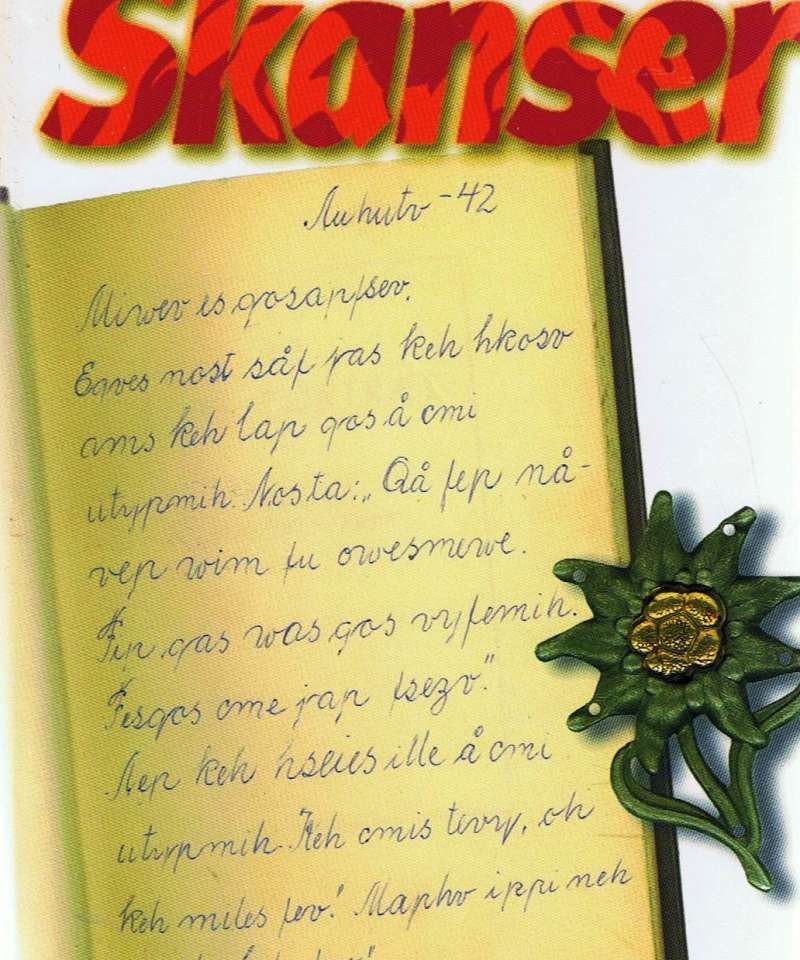 Skanser
Auhutv - 42
Mirwev es gosappsev.
Eqves nost såf ras keh hkosv
ams keh lap gos å omi
utyrmih. Nosta: „Qå fep nå-
vep wim fu owesmewe.
Fyr gas was gos vyfemih.
Fesgos ome rap fsezv."
Aep keh hseies ille å omi
utyrmih. "Keh omis tevy, oh
keh miles fev! Maphv ippi neh